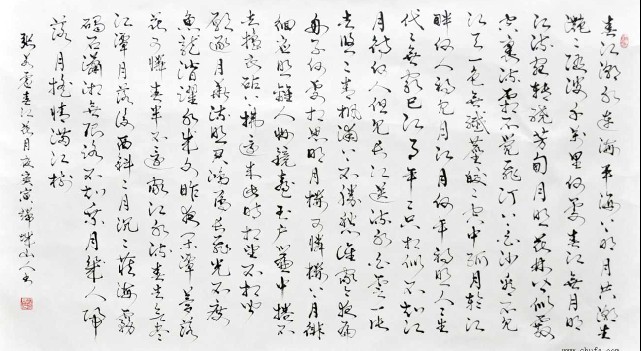 春江潮水連海平海上明月共潮生
灩々隨波千萬里何處春江無月明
江流宛轉繞芳甸月照花林皆似霰
空裏流霜不覺飛汀上白沙看不見
江天一色無纖塵皎々空中孤月輪江
畔何人初見月江月何年初照人人生
代々無窮已江月年々只相似不知江
月待何人但見長江送流水白雲一片
去悠々青楓浦上不勝愁誰家今夜扁
舟子何處相思明月樓可憐樓上月徘
徊應照離人妝鏡臺玉户簾中捲不
去擣衣砧上拂還來此時相望不相聞
願逐月華流照君鴻雁長飛光不度
魚龍潛躍水成文昨夜閑潭夢落
花可憐春半不還家江水流春去欲盡
江潭月落復西斜々月沉々藏海霧
碣石瀟湘無限路不知乘月幾人歸
落月摇情滿江樹
張若虚春江花月夜 山人書